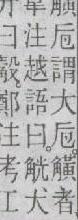 卮謂大卮。觵者
韋注越語曰。觥大
曰觳鄭注考工